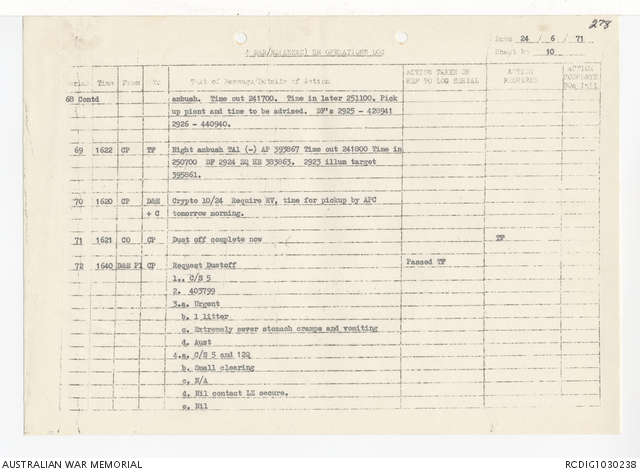 278
Date 24 / 6 / 71
Sheet No 10
OPERATIONS LOG
Serial Time From To Text of Message/Details of Action ACTION TAKEN OR REF TO LOG SERIAL ACTION REQUIRED ACTION COMPLETE
68 Contd ambush. Time out 241700. Time in later 251100. Pick
up pient and time to be advised. DF's 2925 - 428941
2926 - 440940.
69 1622 CP TF Night ambush TA1 (-) AF 393867 Time out 241800 Time in
250700 DF 2924 SQ HE 383863. 2923 illum target
395861.
70 1620 CP D&E Crypto 10/24 Require RV, time for pickup by APC
+ C tomorrow morning.
71 1621 CO CP Dust off complete now TF
72 1640 D&E Pl CP Request Dustoff Passed TF
1.. C/S 5
2. 403799
3.a. Urgent
b. 1 litter
c. Extremely sever stomach cramps and vomiting
d. Aust
4.a. C/S 5 and 12Q
b. Small clearing
c. N/A
d. Nil contact LZ secure.
e. Nil
AUSTRALIAN WAR MEMORIAL
RCDIG1030238